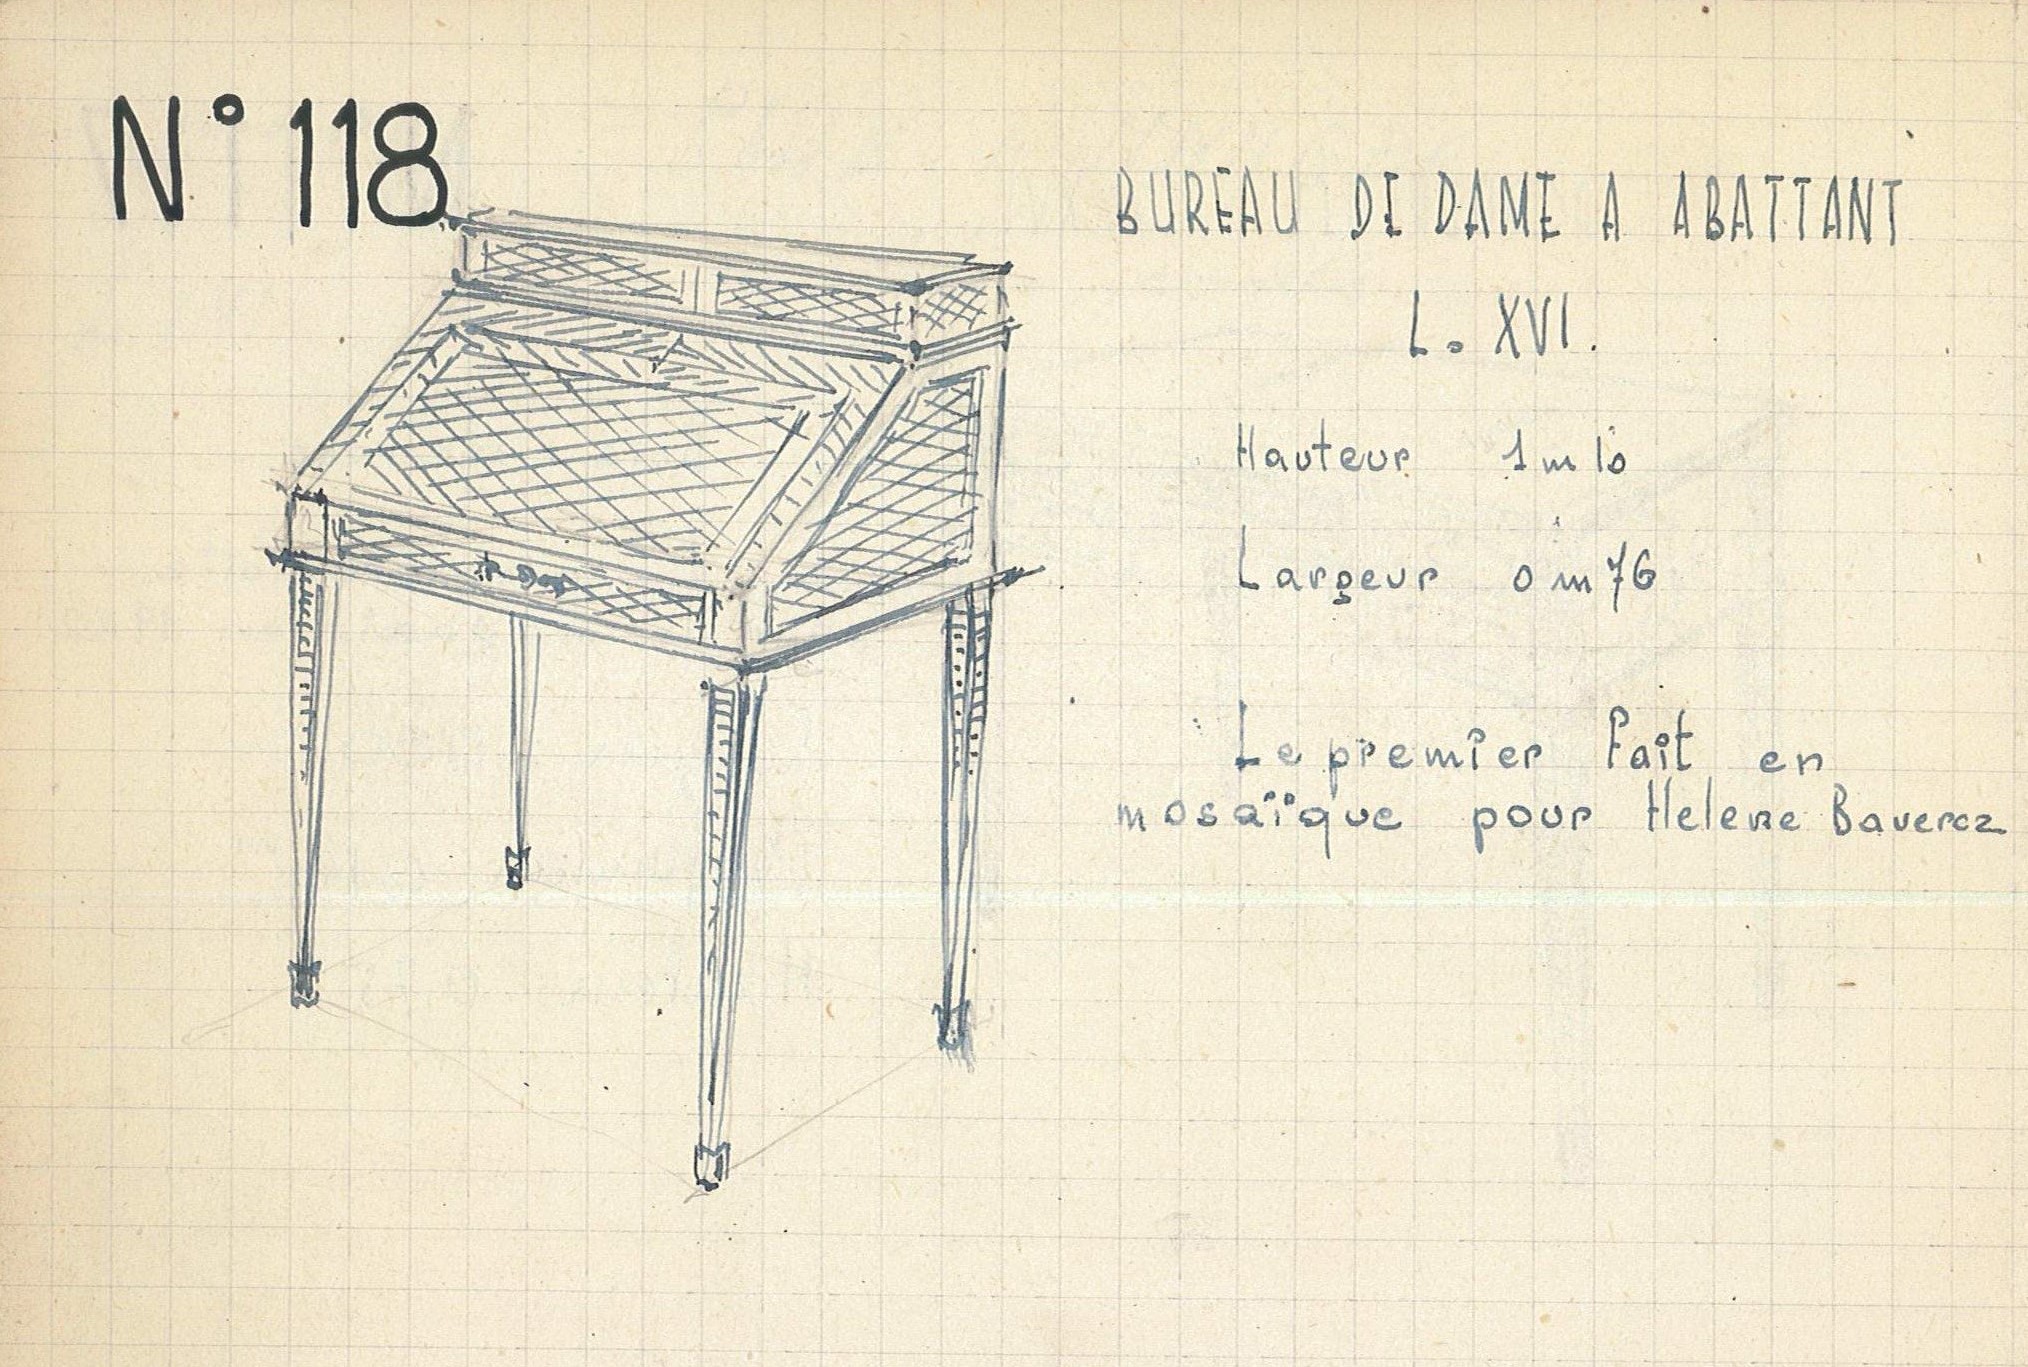 N° 118
BUREAU DE DAME A ABATTANT
L. XVI.
Hauteur 1m10
Largeur 0m76
Le premier fait en
mosaïque pour Helene Baverez